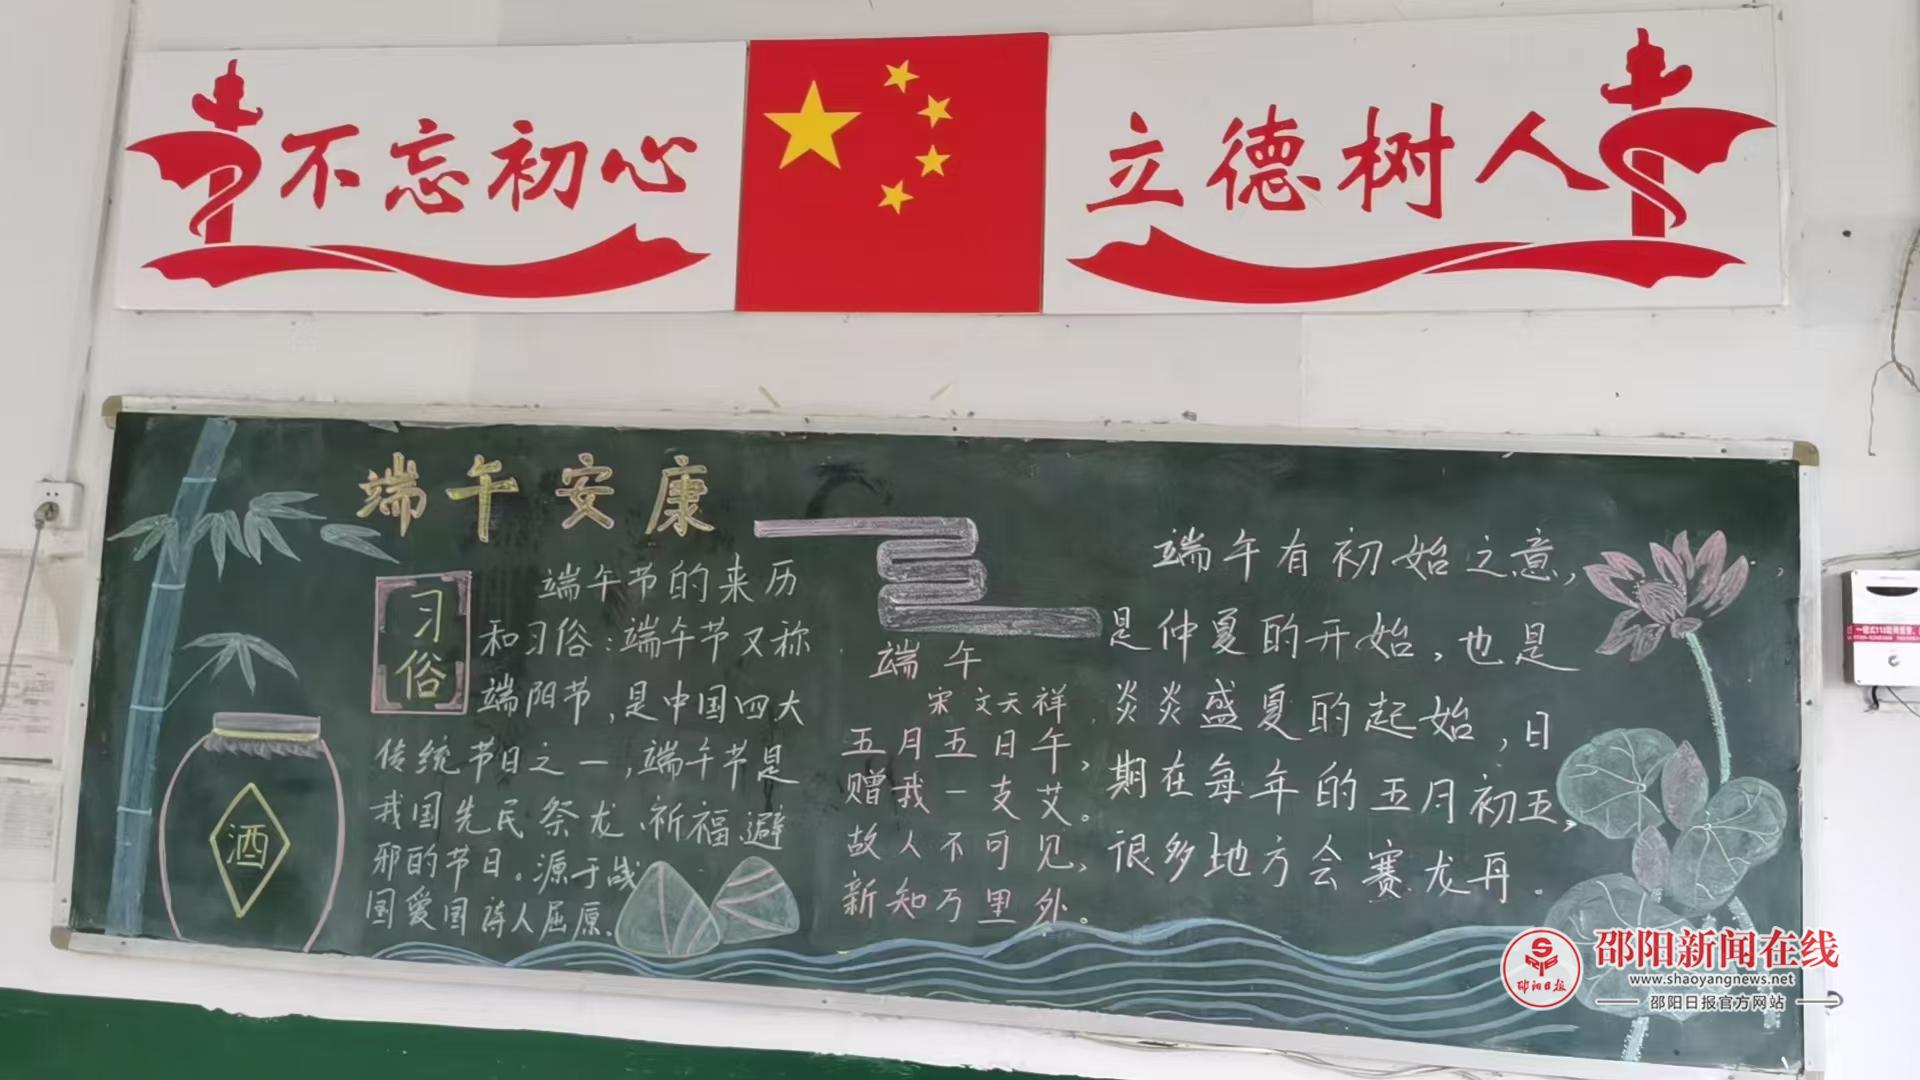 不忘初心
立德树人
端午安康
习俗
端午节的来历
和习俗：端午节又称
端阳节，是中国四大
传统节日之一，端午节是
我国先民祭龙、祈福、避
邪的节日。源于战
国爱国诗人屈原.
酒
端午
宋 文天祥
五月五日午，
赠我一支艾。
故人不可见，
新知万里外。
端午有初始之意，
是仲夏的开始，也是
炎炎盛夏的起始，日
期在每年的五月初五，
很多地方会赛龙舟.
邵阳日报
邵阳新闻在线
www.shaoyangnews.net
邵阳日报官方网站